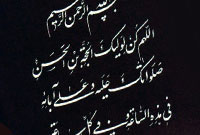 بسم الله الرحمن الرحیم
اللهم کن لولیک الحجة بن الحسن
صلواتک علیه و علی آبائه
فی هذه الساعة و فی کل